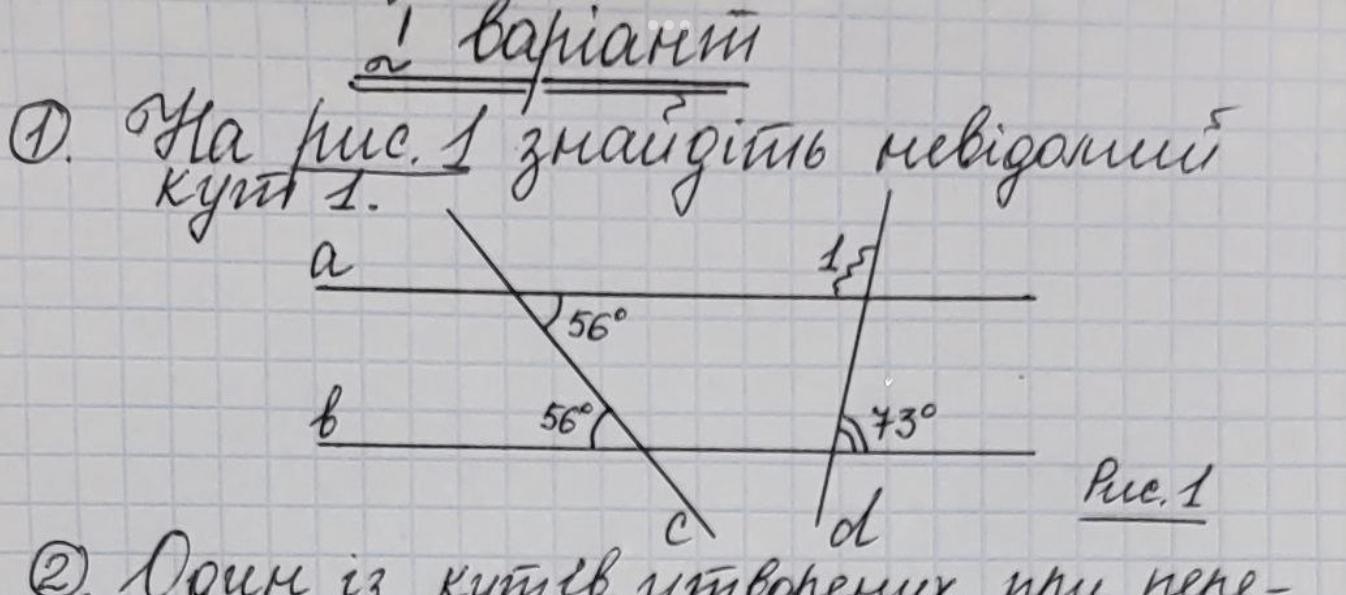 1 варіант
①. На рис. 1 знайдіть невідомий
кут 1.
a
1
56°
b
56°
73°
Рис. 1
c
d
② Один із кутів утворених при пере-